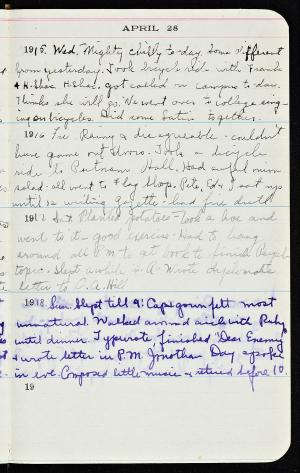 APRIL 28
1915. Wed. Mighty chilly to-day. Some different
from yesterday. Took bicycle ride with Frank
got called on campus to-day.
Thinks she will go. We went over to college sing-
ing on bicycles. Did some Latin together.
1916 Fri. Rainy & disagreeable - couldn't
have game out doors. Took a bicycle
ride to Putnam Hall. Had
salad - all went to Flag Shop. Pete, Ed & I sat up
until 12 writing gazette - had fire drill
1917 Sat. Planted potatoes - Took a hoe and
went to it - good exercise. Had to hang
around all P.M. to get book to finish Psych
topic. Slept awhile in A. Wrote diplomatic
letter to O. A. Hill
1918 Sun. Slept till 9. Cap & gown felt most
unnatural. Walked around circle with Ruby
until dinner. Typewrote, finished "Dear Enemy"
& wrote letter in P.M. Jonathan Day spoke
in eve. Composed little music & retired before 10.
19